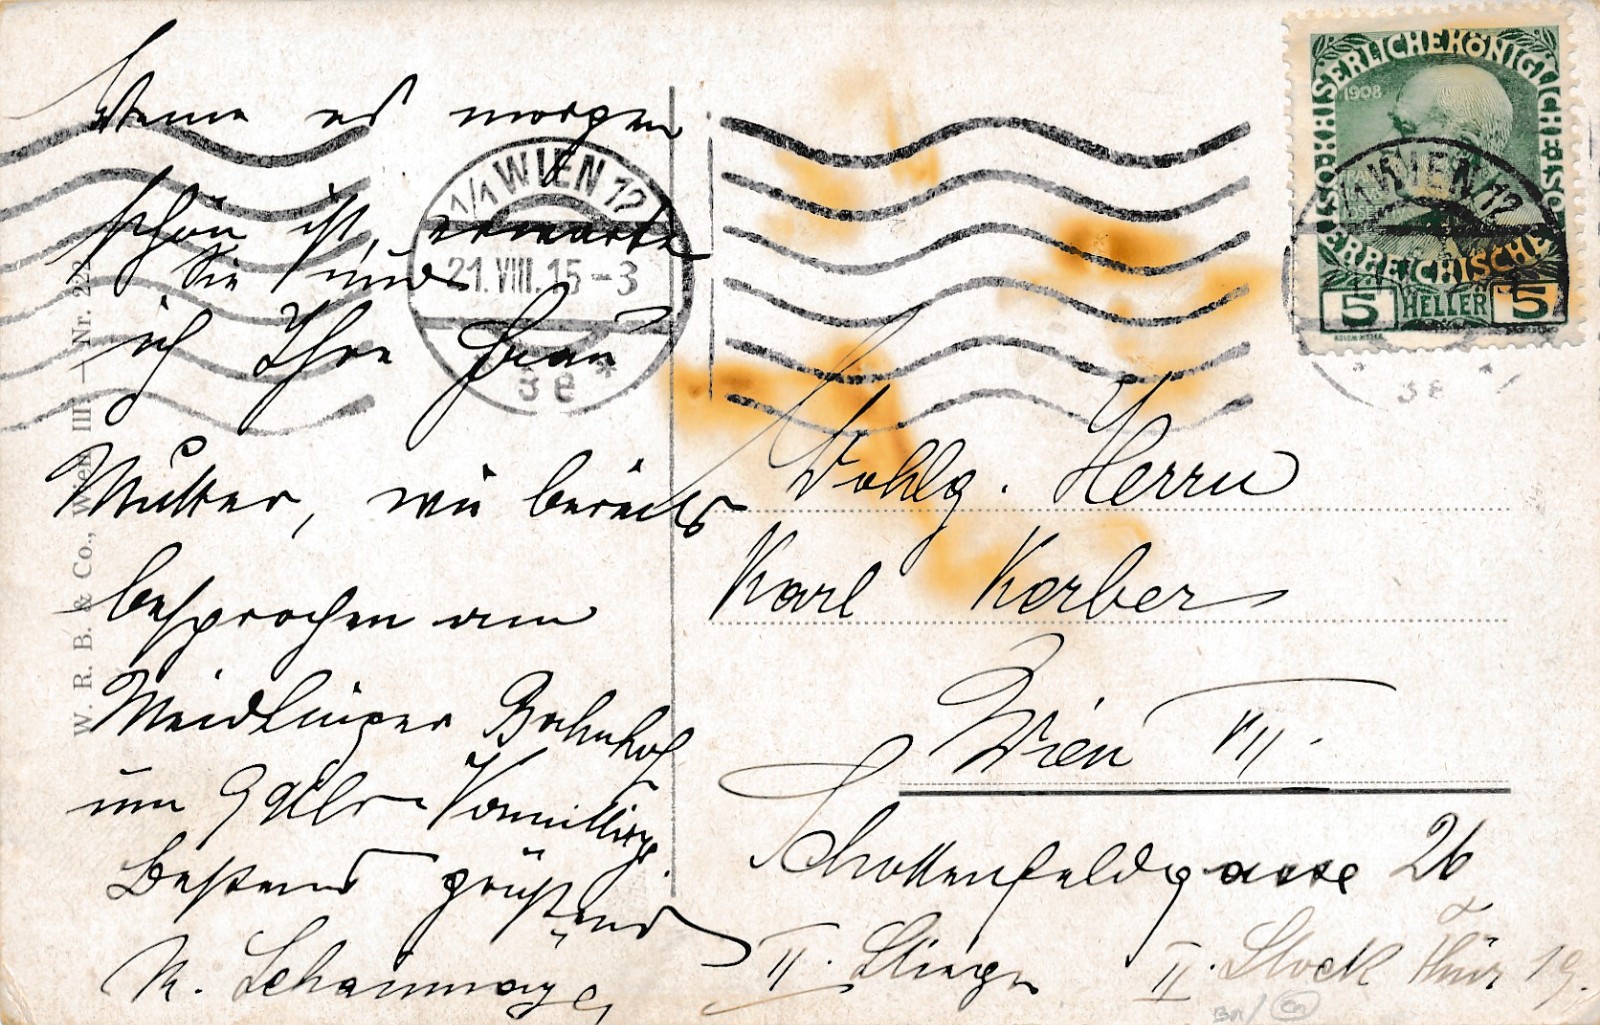 Wenn es morgen
schön ist, erwarte
Sie und
ich Ihre Frau
Mutter, wie bereits
besprochen am
Meidlinger Bahnhof
um 9 Uhr Vormittag.
Bestens grüßend
W. R. B. & Co., Wien III — Nr. 222
1/1 WIEN 12
21.VIII.15-3
3e *
KAISERLICHE KÖNIGLICHE ÖSTERREICHISCHE
1908
5 HELLER 5
1/1 WIEN 12
* 3e *
Wohlg. Herrn
Karl Kerber
Wien VII.
Schottenfeldgasse 26
II. Stiege II. Stock Thür 19.